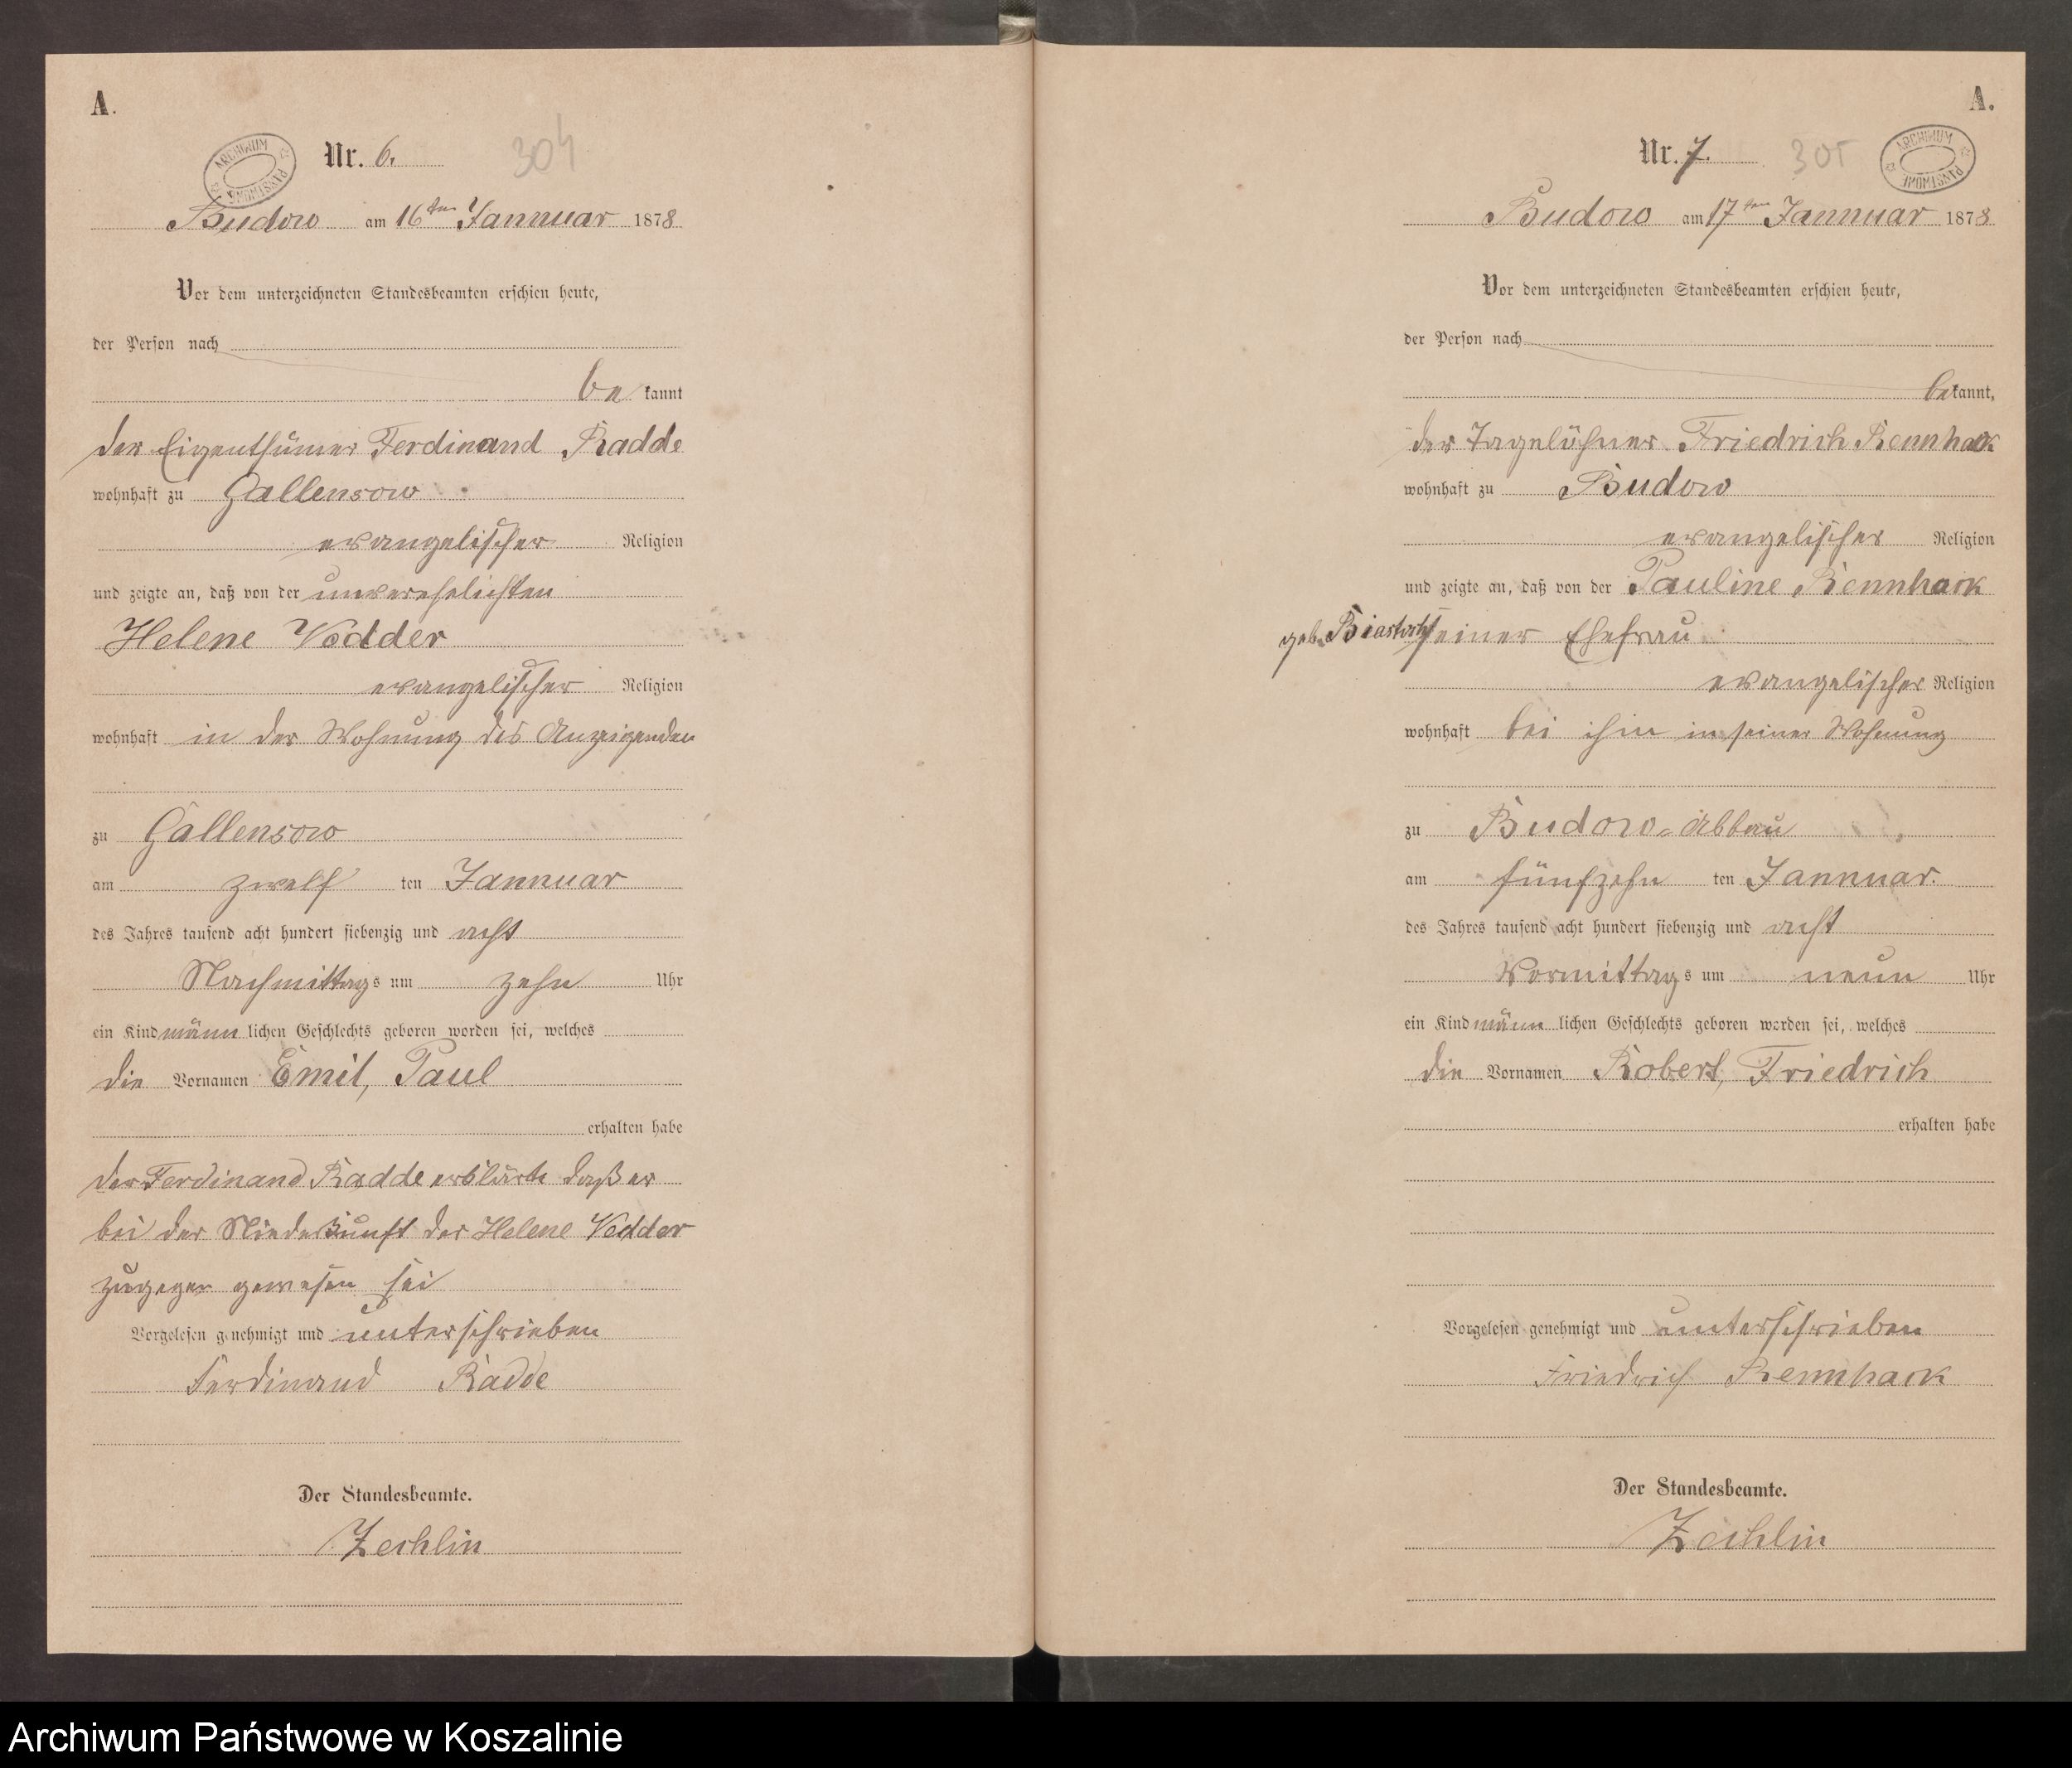 A.
ARCHIWUM PAŃSTWOWE
Nr. 6.
304
Budow am 16ten Jannuar 1878
Vor dem unterzeichneten Standesbeamten erschien heute,
der Person nach
be kannt
der Eigenthümer Ferdinand Radde
wohnhaft zu Gallensow
evangelischer Religion
und zeigte an, daß von der unverehelichten
Helene Vedder
evangelischer Religion
wohnhaft in der Wohnung des Anzeigenden
zu Gallensow
am zwölf ten Jannuar
des Jahres tausend acht hundert siebenzig und acht
Nachmittags um zehn Uhr
ein Kind männlichen Geschlechts geboren worden sei, welches
die Vornamen Emil, Paul
erhalten habe
der Ferdinand Radde erklärte daß er
bei der Niederkunft der Helene Vedder
zugegen gewesen sei
Vorgelesen genehmigt und unterschrieben
Ferdinand Radde
Der Standesbeamte.
Zechlin
A.
ARCHIWUM PAŃSTWOWE
Nr. 7.
305
Budow am 17ten Jannuar 1878
Vor dem unterzeichneten Standesbeamten erschien heute,
der Person nach
bekannt,
der Tagelöhner Friedrich Rennhack
wohnhaft zu Budow
evangelischer Religion
und zeigte an, daß von der Pauline Rennhack
geb. seiner Ehefrau
evangelischer Religion
wohnhaft bei ihm in seiner Wohnung
zu Budow-Abbau
am fünfzehn ten Jannuar.
des Jahres tausend acht hundert siebenzig und acht
Vormittags um neun Uhr
ein Kind männlichen Geschlechts geboren worden sei, welches
die Vornamen Robert, Friedrich
erhalten habe
Vorgelesen genehmigt und unterschrieben
Friedrich Rennhack
Der Standesbeamte.
Zechlin
Archiwum Państwowe w Koszalinie